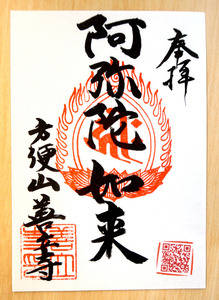 奉拝
阿弥陀如来
方便山